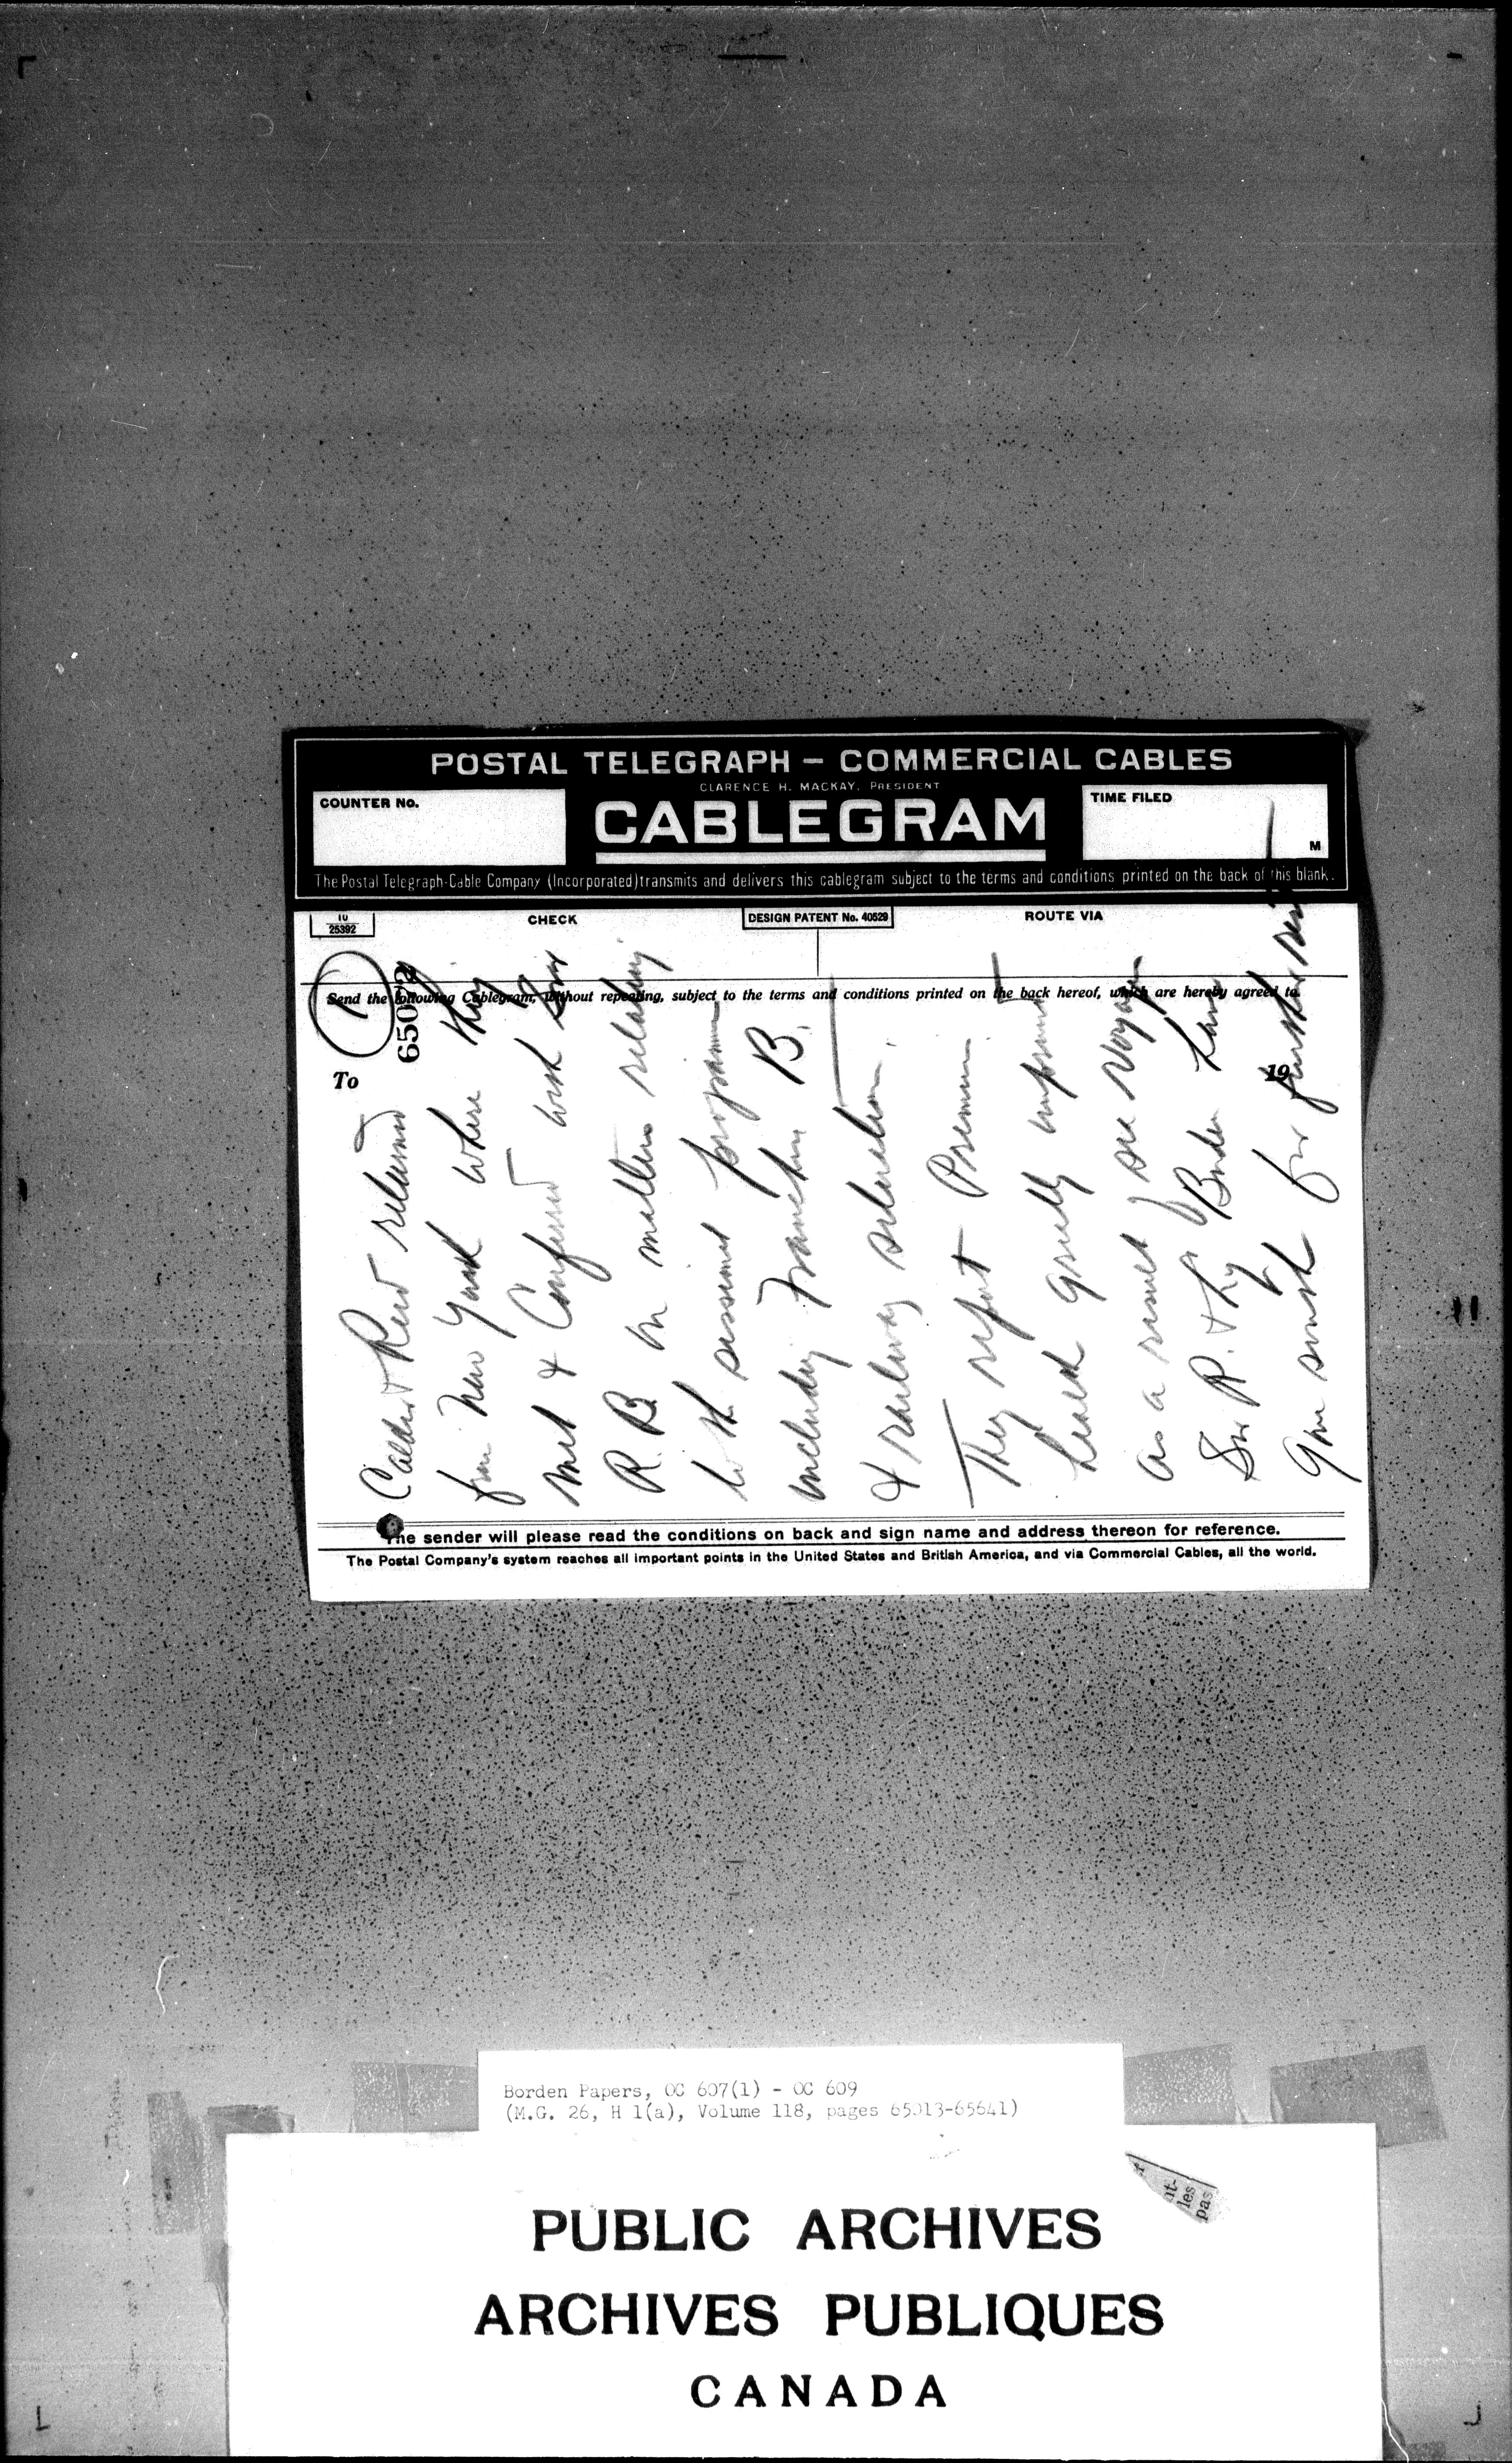 POSTAL TELEGRAPH — COMMERCIAL CABLES
CLARENCE H. MACKAY, PRESIDENT
COUNTER No.
CABLEGRAM
TIME FILED
M
The Postal Telegraph-Cable Company (Incorporated) transmits and delivers this cablegram subject to the terms and conditions printed on the back of this blank.
10
25392
CHECK
DESIGN PATENT No. 40529
ROUTE VIA
Send the following Cablegram, without repeating, subject to the terms and conditions printed on the back hereof, which are hereby agreed to
To
19
1
65072
Calder & Reid returned
from New York where they
met & Conferred with Sir
R. B. on matters relating
to the sessional programme
including Franchise B.
& railway situation.
They report Premier
health greatly improved
as a result of sea voyage
Sir R. & Lady Borden have
gone south for further rest
The sender will please read the conditions on back and sign name and address thereon for reference.
The Postal Company's system reaches all important points in the United States and British America, and via Commercial Cables, all the world.
Borden Papers, OC 607(1) - OC 609
(M.G. 26, H 1(a), Volume 118, pages 65013-65641)
nt-
les
pas
PUBLIC ARCHIVES
ARCHIVES PUBLIQUES
CANADA